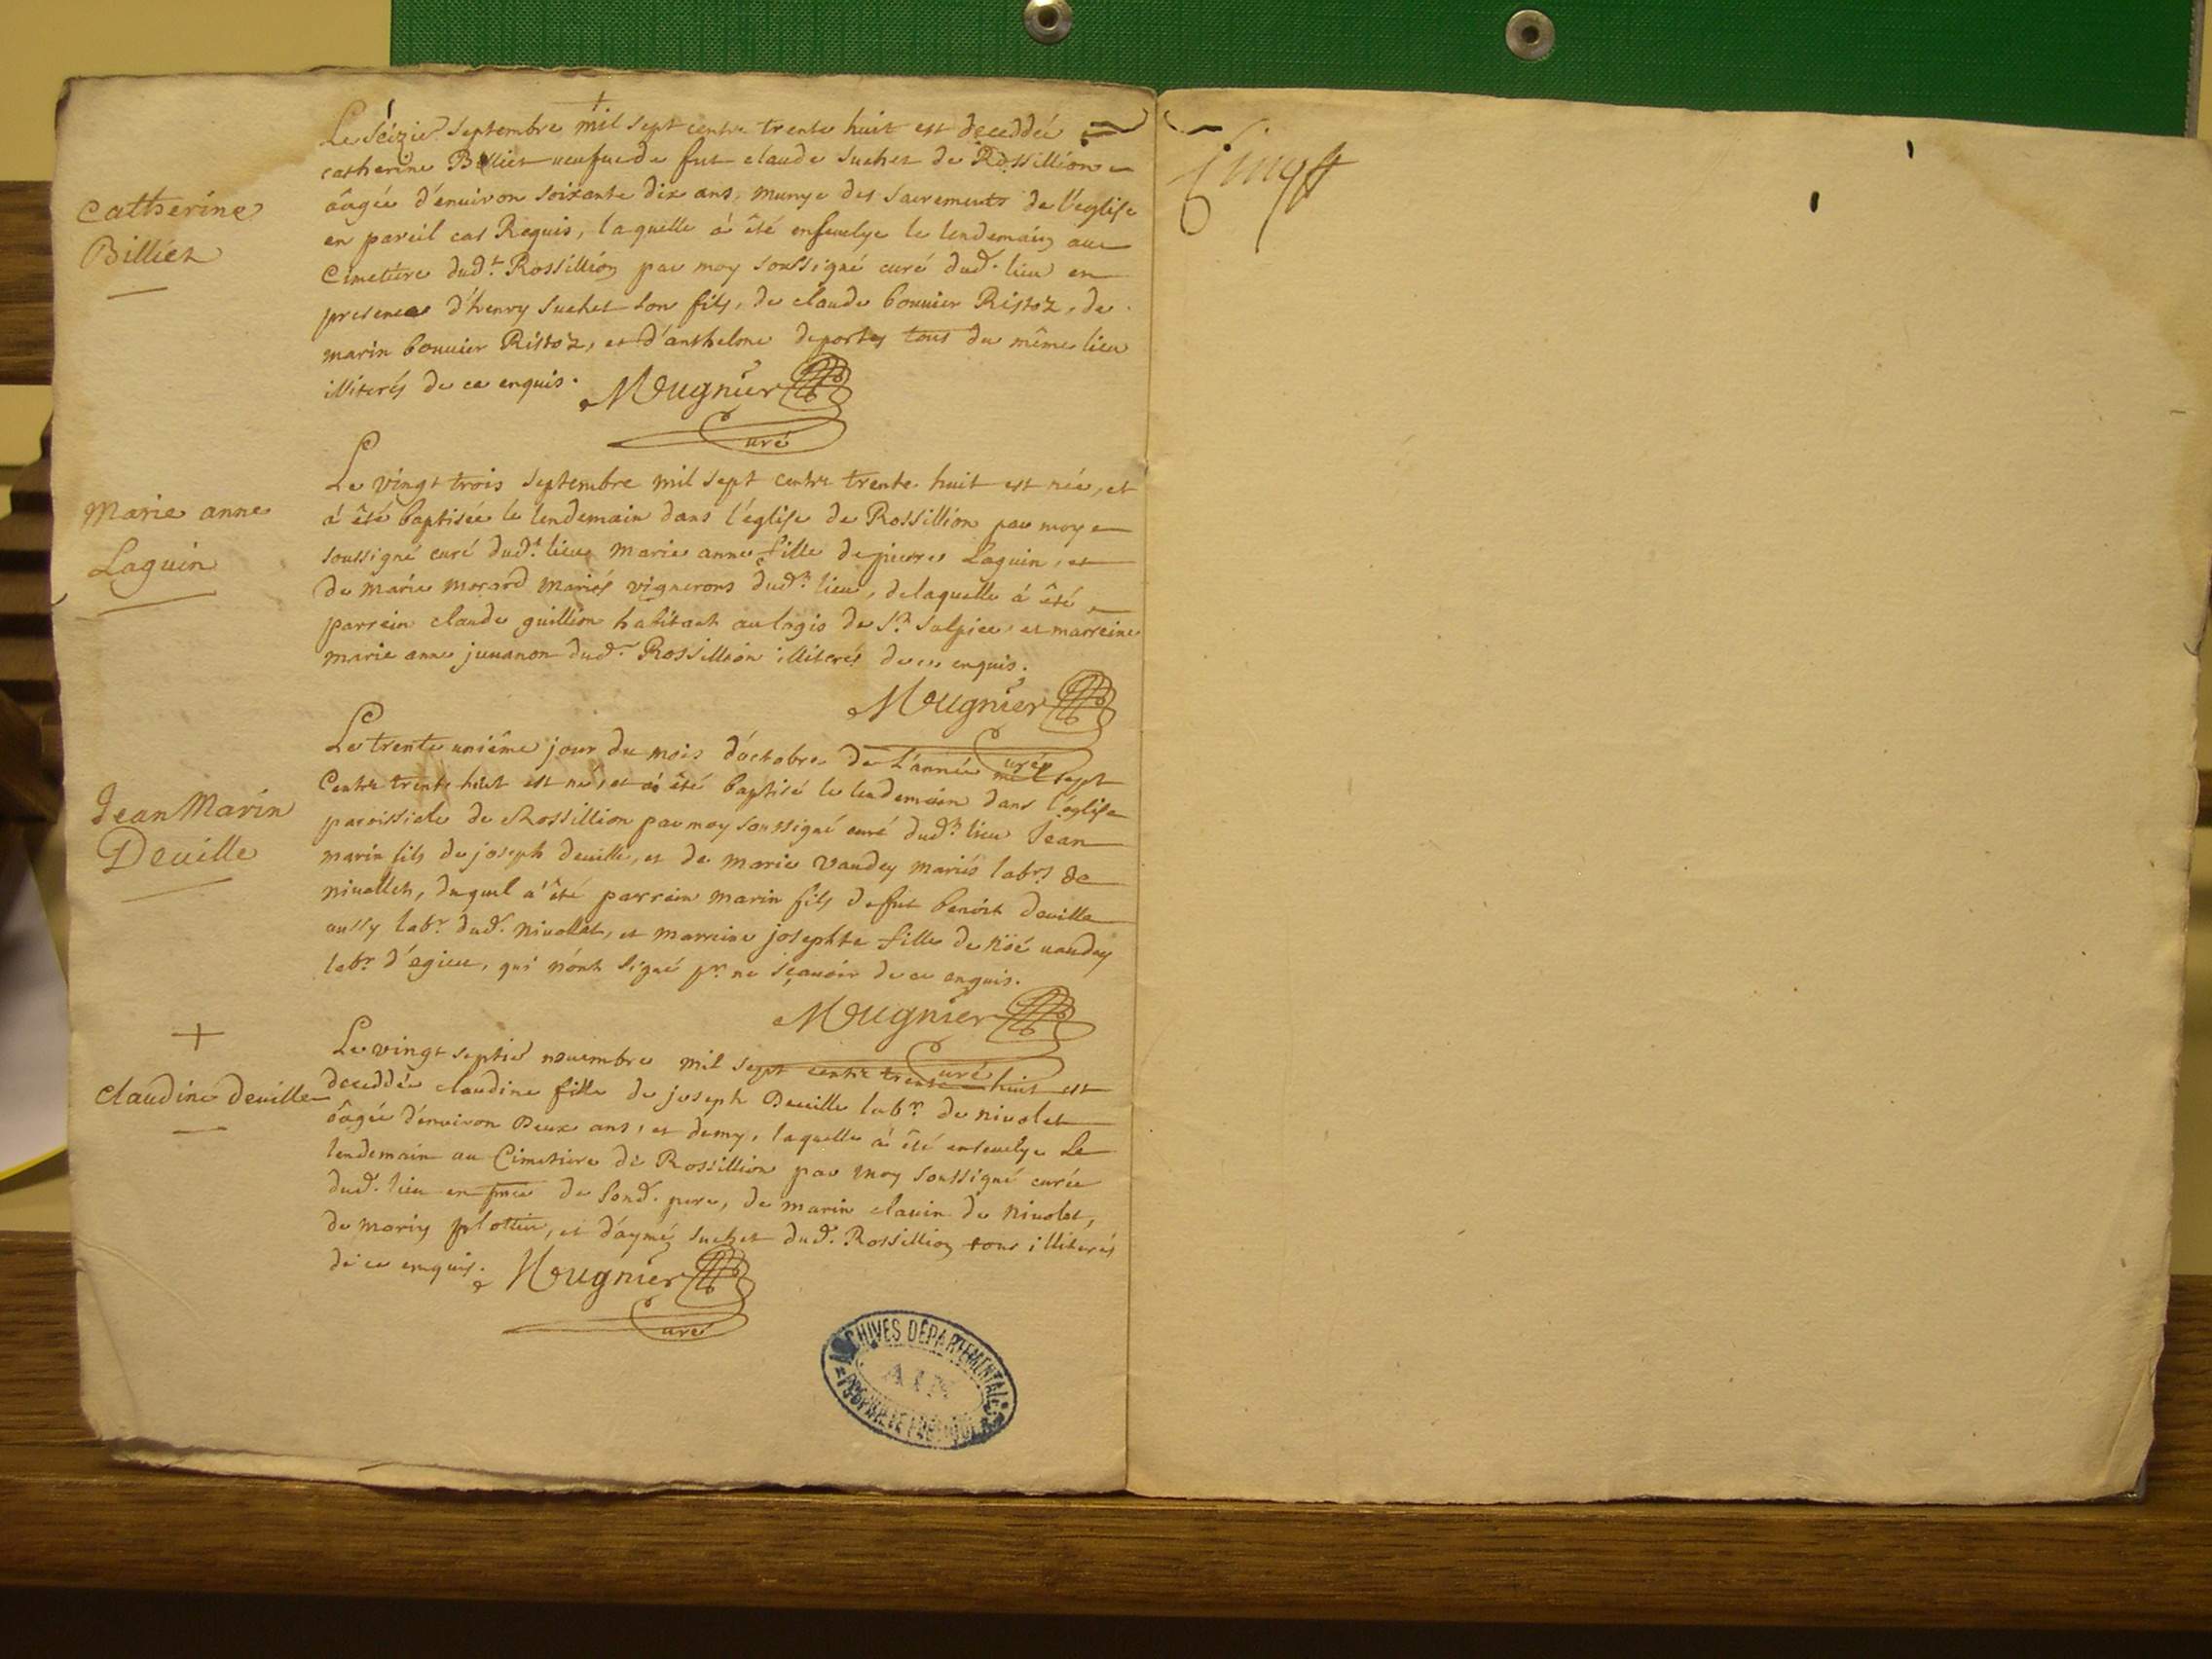 Catherine
Billiet
Le séizie septembre mil sept cents trente huit est deceddée
catherine Billiet veufue de fut claude suchet de Rossillion
âagée d'enuiron soixante dix ans, munye des sacrements de l'eglise
en pareil cas Requis, laquelle à été enseuelye le lendemain au
Cimetière dud.t Rossillion par moy soussigné curé dud. lieu en
presence d'henry suchet son fils, de claude bouuier Ristoz, de
marin bouuier Ristoz, et d'anthelme deportes tous du même lieu
illiterés de ce enquis.
Mougnier
curé
Marie anne
Laguin
Le vingt trois septembre mil sept cents trente huit est née, et
à été baptisée le lendemain dans l'église de Rossillion par moy
soussigné curé dud.t lieu marie anne fille de pierre Laguin, et
de marie morard mariés vignerons dud.t lieu, de laquelle à été
parrein claude guillion habitant au logis de S.t Sulpice et marreine
marie anne juuanon dud.t Rossillion illiterés de ce enquis.
Mougnier
curé
Jean Marin
Deuille
Le trente unième jour du mois d'octobre de L'année mil sept
Cents trente huit est né, et à été baptisé le lendemain dans l'église
paroissiale de Rossillion par moy soussigné curé dud.t lieu Jean
marin fils de joseph deuille, et de marie vaudey mariés lab.rs de
niuollet, duquel a été parrein marin fils de fut benoit deuille
aussy lab.r dud. niuollet, et marreine josephte fille de Noé uaudey
lab.r d'egieu, qui n'ont signé p.r ne sçauoir de ce enquis.
Mougnier
curé
+
claudine deuille
Le vingt septie nouembre mil sept cents trente huit est
deceddée claudine fille de joseph Deuille lab.r de niuolet
âagée d'enuiron Deux ans, et demy, laquelle à été enseuelye Le
lendemain au Cimetiere de Rossillion par moy soussigné curée
dud. lieu en pnce de sond. pere, de marin clauin de niuolet,
de marin plottier, et d'aymé suchet dud. Rossillion tous illiterés
de ce enquis.
Mougnier
curé
ARCHIVES DÉPARTEMENTALES
AIN
PROPRIÉTÉ PUBLIQUE